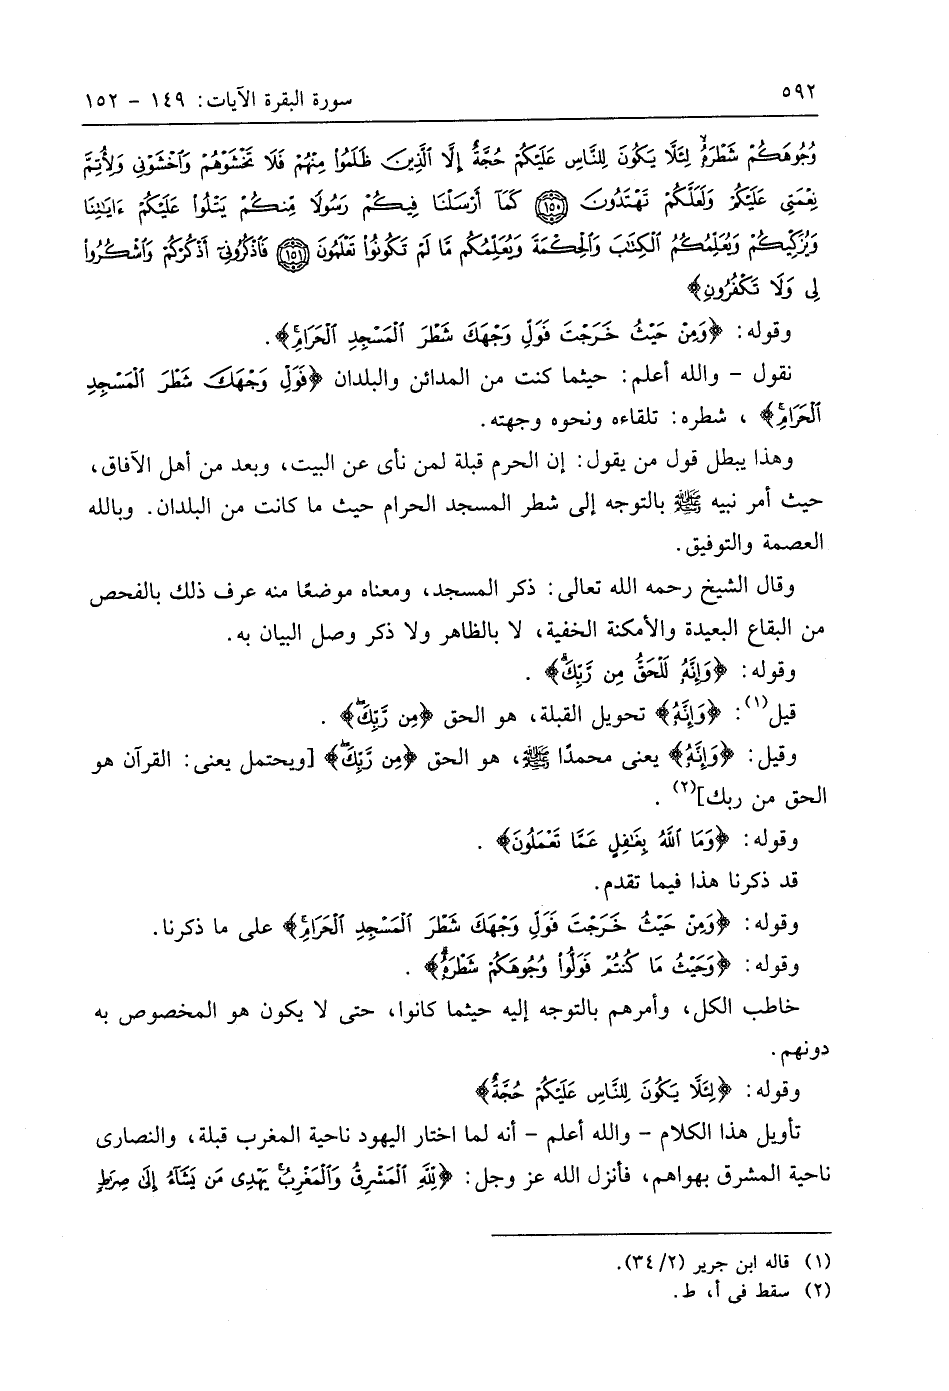 ٥٩٢
سورة البقرة الآيات: ١٤٩ - ١٥٢
وُجُوهَكُمْ شَطْرَهُۥ لِئَلَّا يَكُونَ لِلنَّاسِ عَلَيْكُمْ حُجَّةٌ إِلَّا ٱلَّذِينَ ظَلَمُوا۟ مِنْهُمْ فَلَا تَخْشَوْهُمْ وَٱخْشَوْنِى وَلِأُتِمَّ
نِعْمَتِى عَلَيْكُمْ وَلَعَلَّكُمْ تَهْتَدُونَ ﴿١٥٠﴾ كَمَآ أَرْسَلْنَا فِيكُمْ رَسُولًا مِّنكُمْ يَتْلُوا۟ عَلَيْكُمْ ءَايَٰتِنَا
وَيُزَكِّيكُمْ وَيُعَلِّمُكُمُ ٱلْكِتَٰبَ وَٱلْحِكْمَةَ وَيُعَلِّمُكُم مَّا لَمْ تَكُونُوا۟ تَعْلَمُونَ ﴿١٥١﴾ فَٱذْكُرُونِىٓ أَذْكُرْكُمْ وَٱشْكُرُوا۟
لِى وَلَا تَكْفُرُونِ﴾
وقوله: ﴿وَمِنْ حَيْثُ خَرَجْتَ فَوَلِّ وَجْهَكَ شَطْرَ ٱلْمَسْجِدِ ٱلْحَرَامِ﴾.
نقول - والله أعلم: حيثما كنت من المدائن والبلدان ﴿فَوَلِّ وَجْهَكَ شَطْرَ ٱلْمَسْجِدِ
ٱلْحَرَامِ﴾ ، شطره: تلقاءه ونحوه وجهته.
وهذا يبطل قول من يقول: إن الحرم قبلة لمن نأى عن البيت، وبعد من أهل الآفاق،
حيث أمر نبيه ﷺ بالتوجه إلى شطر المسجد الحرام حيث ما كانت من البلدان. وبالله
العصمة والتوفيق.
وقال الشيخ رحمه الله تعالى: ذكر المسجد، ومعناه موضعًا منه عرف ذلك بالفحص
من البقاع البعيدة والأمكنة الخفية، لا بالظاهر ولا ذكر وصل البيان به.
وقوله: ﴿وَإِنَّهُۥ لَلْحَقُّ مِن رَّبِّكَ﴾ .
قيل(١): ﴿وَإِنَّهُۥ﴾ تحويل القبلة، هو الحق ﴿مِن رَّبِّكَ﴾ .
وقيل: ﴿وَإِنَّهُۥ﴾ يعنى محمدًا ﷺ، هو الحق ﴿مِن رَّبِّكَ﴾ [ويحتمل يعنى: القرآن هو
الحق من ربك](٢) .
وقوله: ﴿وَمَا ٱللَّهُ بِغَٰفِلٍ عَمَّا تَعْمَلُونَ﴾ .
قد ذكرنا هذا فيما تقدم.
وقوله: ﴿وَمِنْ حَيْثُ خَرَجْتَ فَوَلِّ وَجْهَكَ شَطْرَ ٱلْمَسْجِدِ ٱلْحَرَامِ﴾ على ما ذكرنا.
وقوله: ﴿وَحَيْثُ مَا كُنتُمْ فَوَلُّوا۟ وُجُوهَكُمْ شَطْرَهُۥ﴾ .
خاطب الكل، وأمرهم بالتوجه إليه حيثما كانوا، حتى لا يكون هو المخصوص به
دونهم.
وقوله: ﴿لِئَلَّا يَكُونَ لِلنَّاسِ عَلَيْكُمْ حُجَّةٌ﴾
تأويل هذا الكلام - والله أعلم - أنه لما اختار اليهود ناحية المغرب قبلة، والنصارى
ناحية المشرق بهواهم، فأنزل الله عز وجل: ﴿لِّلَّهِ ٱلْمَشْرِقُ وَٱلْمَغْرِبُ يَهْدِى مَن يَشَآءُ إِلَىٰ صِرَٰطٍ
(١) قاله ابن جرير (٢/ ٣٤).
(٢) سقط فى أ، ط.